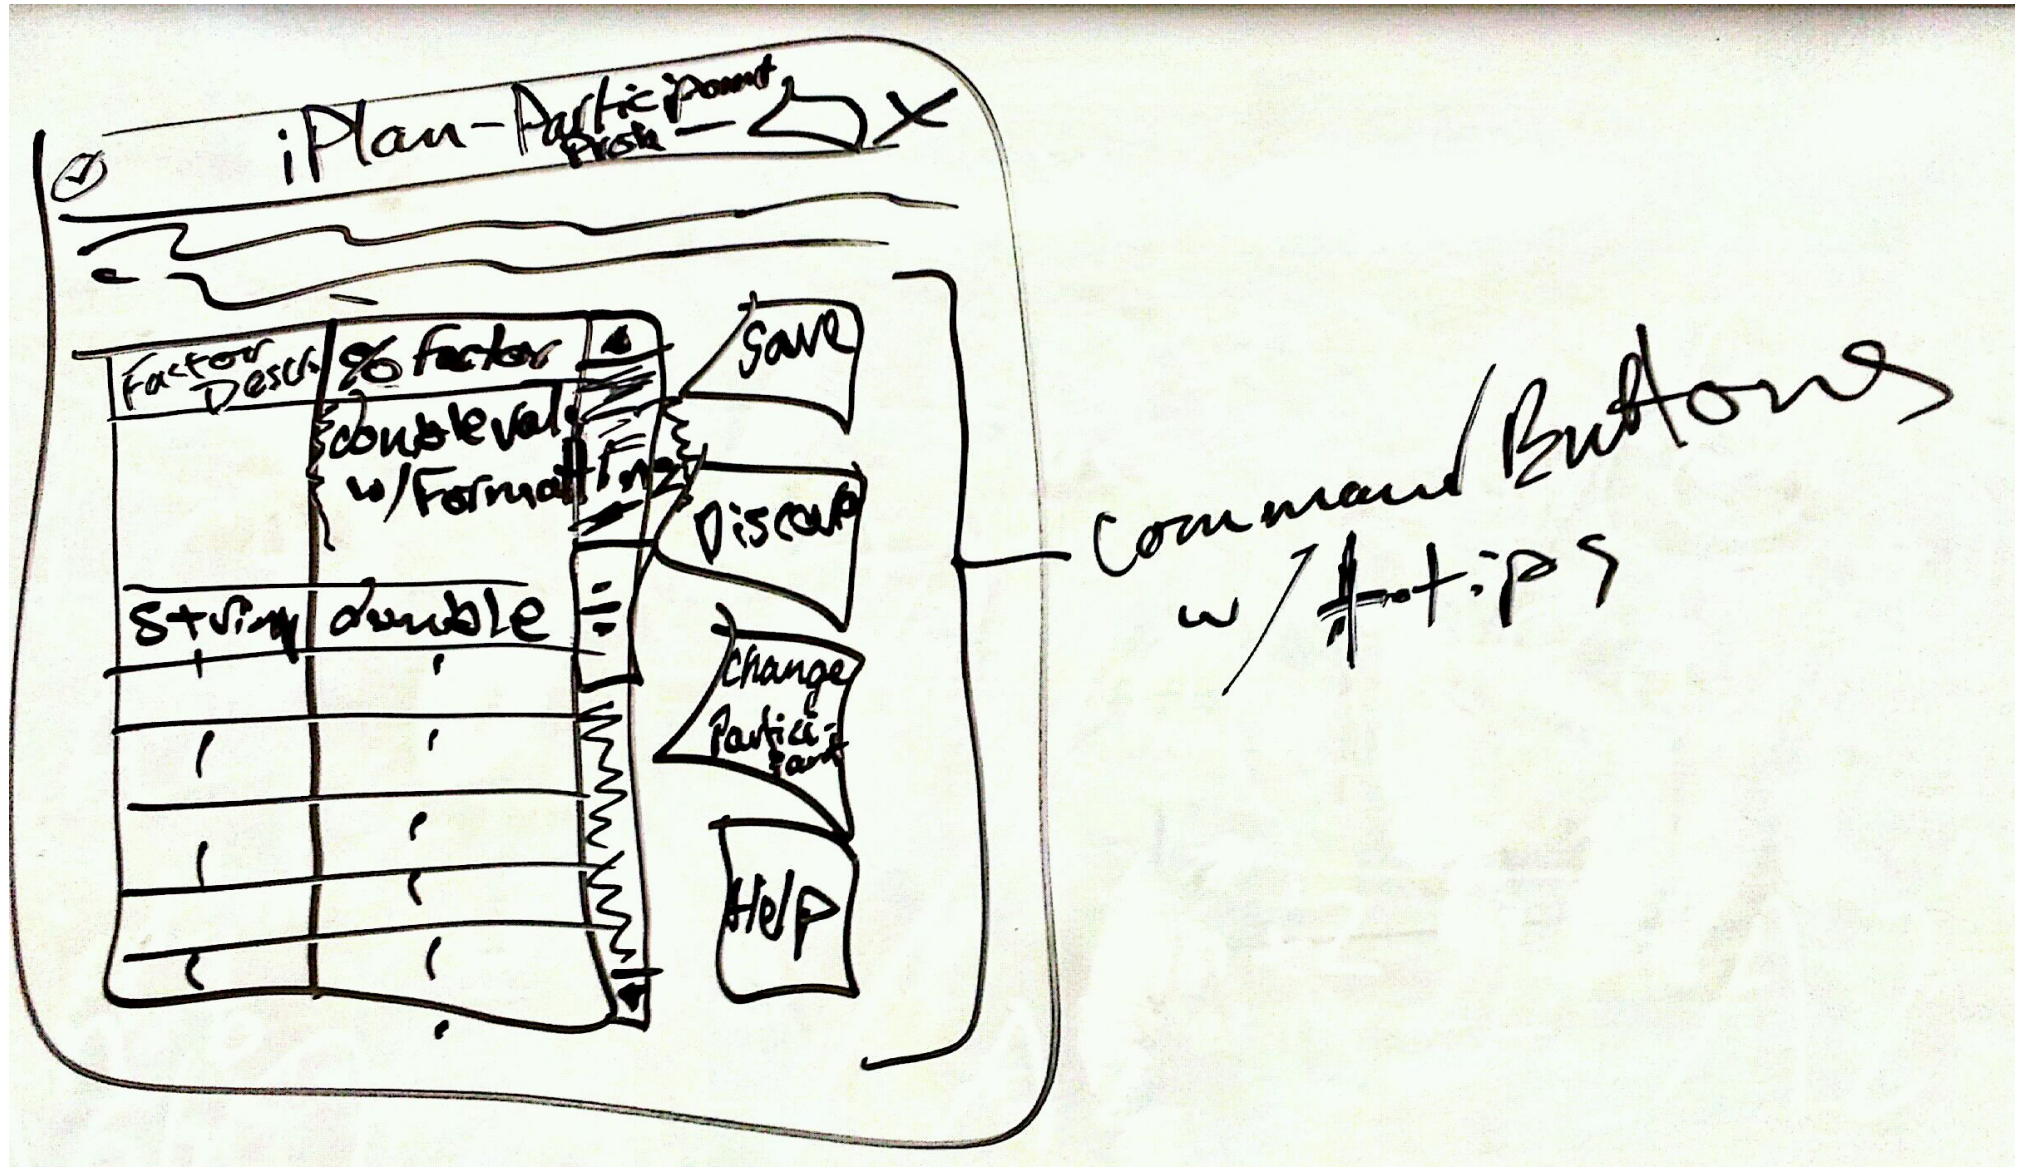 iPlan-Participant
X
Factor
Descr.
% factor
double val
w/Formatting
string double
Save
Change
Partici-
pant
Help
Command Buttons
w/ tips